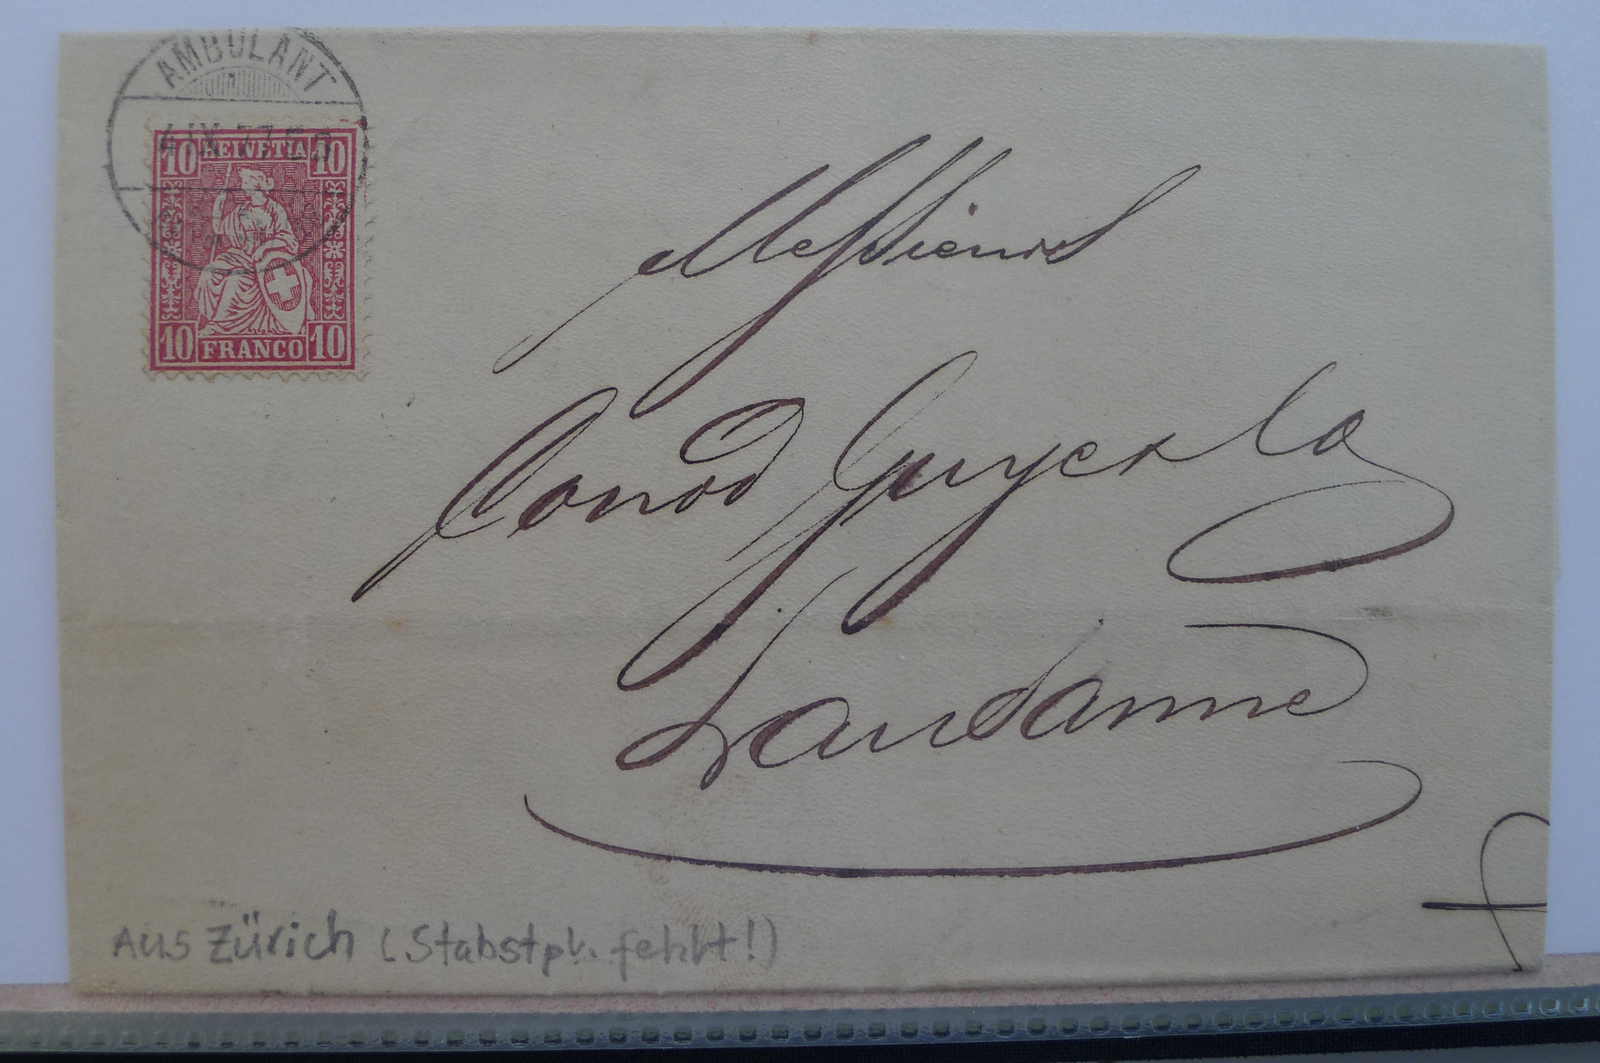 AMBULANT
10 HELVETIA 10
10 FRANCO 10
Messieurs
Conod
Lausanne
Aus Zürich (Stabstpl. fehlt!)